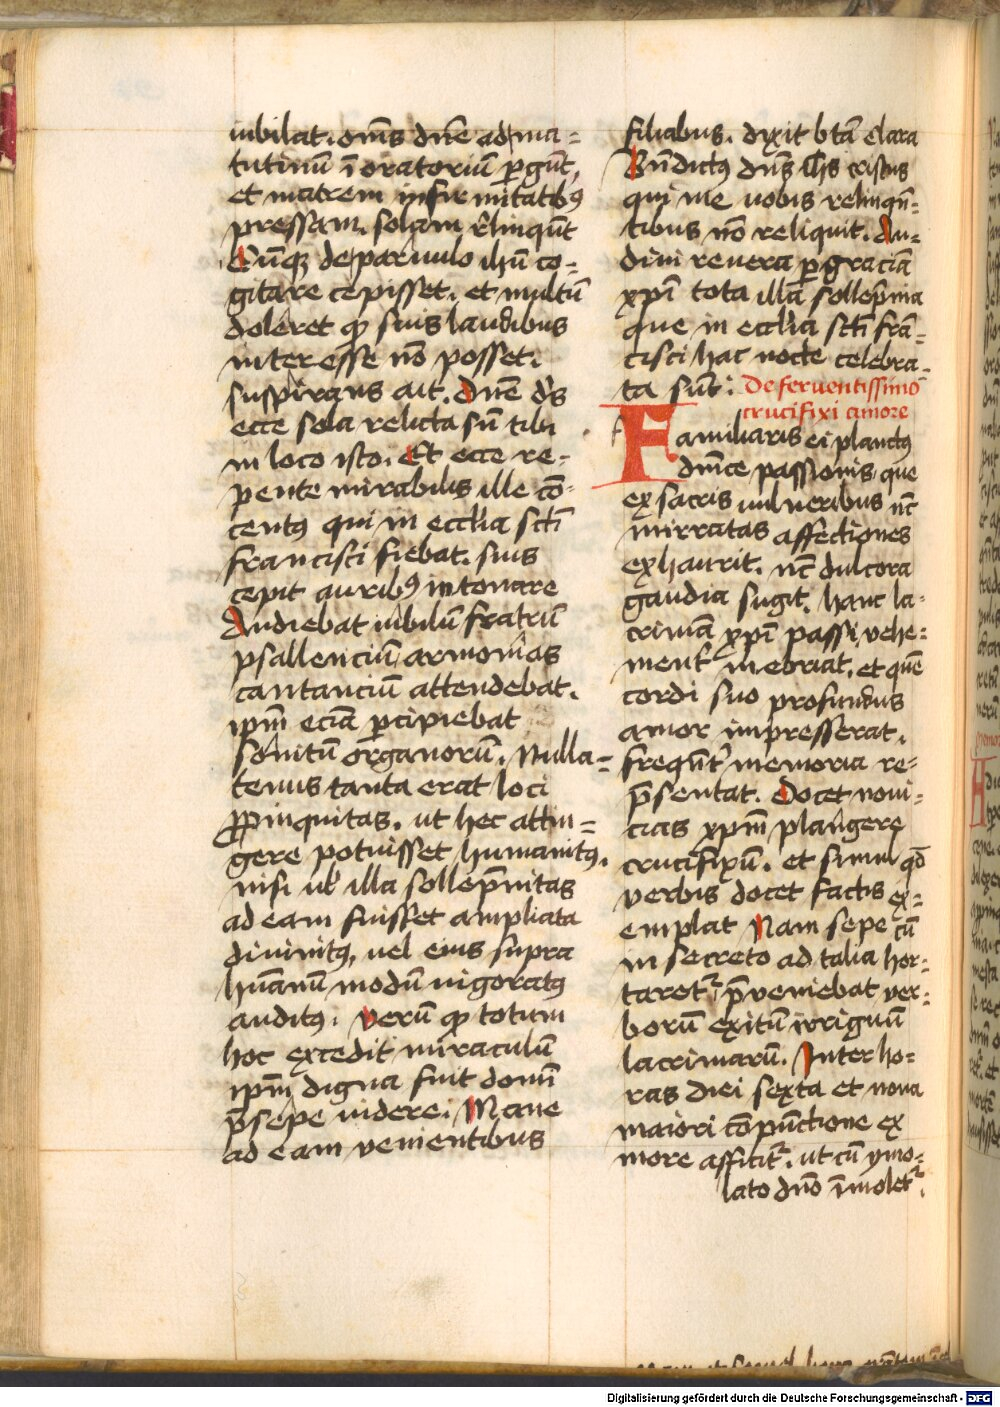 iubilat. om̄s dn̄e ad ma=
tutinū ī oratoriū ꝑgūt,
et matrem infirmitatibꝰ
pressam. solam r̄linqūt
Cūqꝫ de paruulo ihū co=
gitare cepisset. et multū
doleret ꝙ suis laudibus
interesse nō posset.
suspirans ait. Dn̄e ds̄
ecce sola relicta sū tibi
in loco isto. Et ecce re=
pente mirabilis ille cō=
centꝰ qui in ecclīa sctī
francisci fiebat. suis
cepit auribꝰ intonare
Audiebat iubilū fratrū
psallenciū armonias
cantanciū attendebat.
ipm̄ eciā ꝑcipiebat
sonitū organorū. Nulla=
tenus tanta erat loci
ꝓpinquitas. ut hec attin=
gere potuisset humanitꝰ.
nisi ul̄ illa sollep̄nitas
ad eam fuisset ampliata
diuinitꝰ, uel eius supra
hūanū modū uigoratꝰ
auditꝰ. Verū ꝙ totum
hoc excedit miraculū
ipm̄ digna fuit domī
p̄sepe uidere. Mane
ad eam venientibus
filiabus. dixit btā clara
Bn̄dictꝰ dn̄s ihs̄ cristus
qui me uobis relinqūn=
tibus nō reliquit. Au=
diui reuera ꝑ graciā
xp̄i tota illā sollep̄nia
que in ecclīa sctī frā=
cisci hac nocte celebra=
ta sūt. De feruentissimo
crucifixi amore
Familiaris ei planctꝰ
dnīce passionis que
ex sacris uulneribus nc̄
mirratas affectiones
exhaurit. nc̄ dulcora
gaudia sugit. hanc la=
crimā xp̄i passi, vehe=
ment᷑ inebriat. et quē
cordi suo profundus
amor impresserat.
freqūt᷑ memoria re=
p̄sentat. Docet noui=
cias xpm̄ plangere
crucifixū. et simul qd̄
verbis docet factis ex=
emplat Nam sepe cū
in secreto ad talia hor=
taret᷑ p̄ueniebat ver=
borū exitū irriguū
lacrimarū. Inter ho=
ras diei sexta et nona
maiori cōpūctione ex
more afficit᷑. ut cū ymo=
lato dn̄o īmolet᷑.
Digitalisierung gefördert durch die Deutsche Forschungsgemeinschaft - DFG